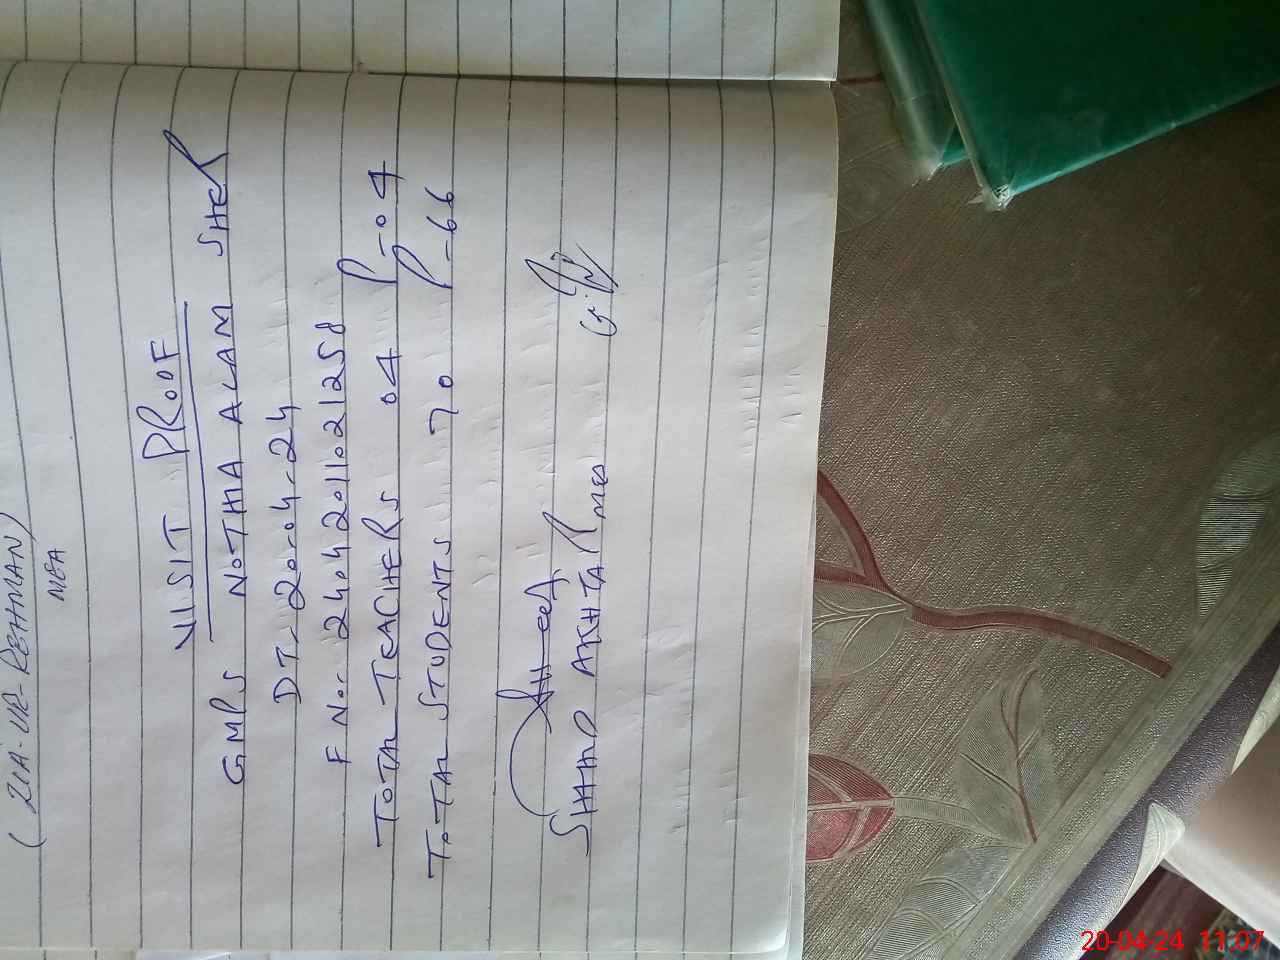 (ZIA-UR-REHMAN)
MEA
VISIT PROOF
GMPS NOTHA ALAM SHER
DT- 20-04-24
F No- 24042011021258
TOTAL TEACHERS 04 P-04
TOTAL STUDENTS 70 P-66
SHAHID AKHTAR MEA
20-04-24 11:07